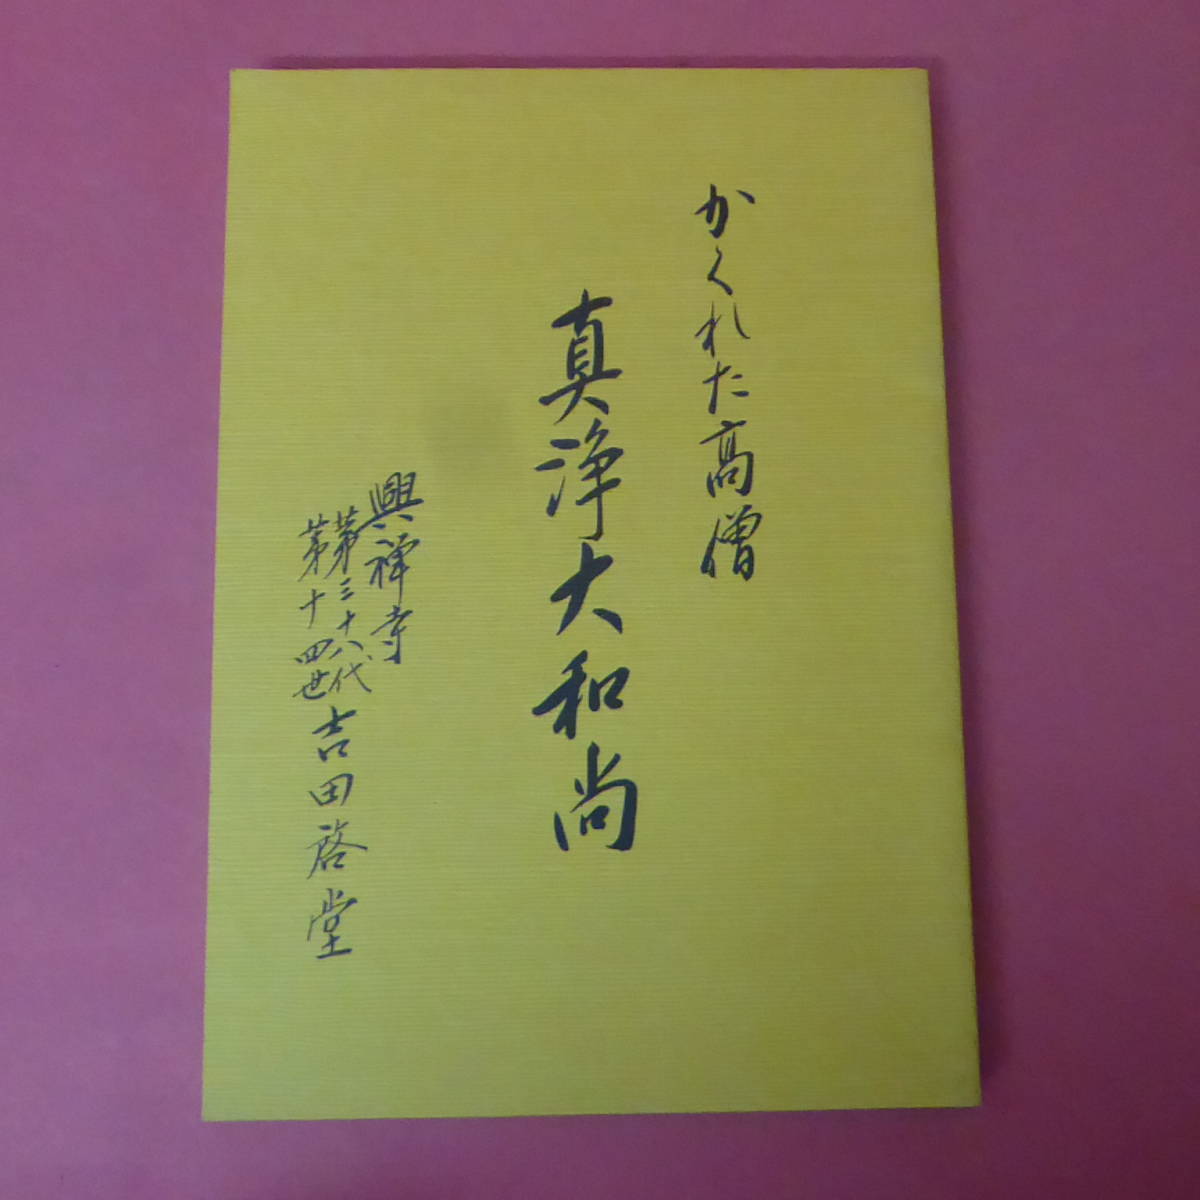 かくれた高僧
真浄大和尚
興禅寺
第三十八代
第十四世
吉田啓堂